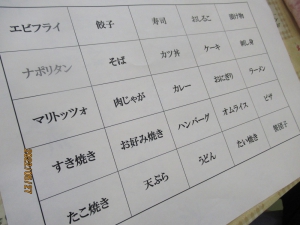 エビフライ 餃子 寿司 おしるこ 漬け物
ナポリタン そば カツ丼 ケーキ 刺し身
マリトッツォ 肉じゃが カレー おにぎり ラーメン
すき焼き お好み焼き ハンバーグ オムライス ピザ
たこ焼き 天ぷら うどん たい焼き